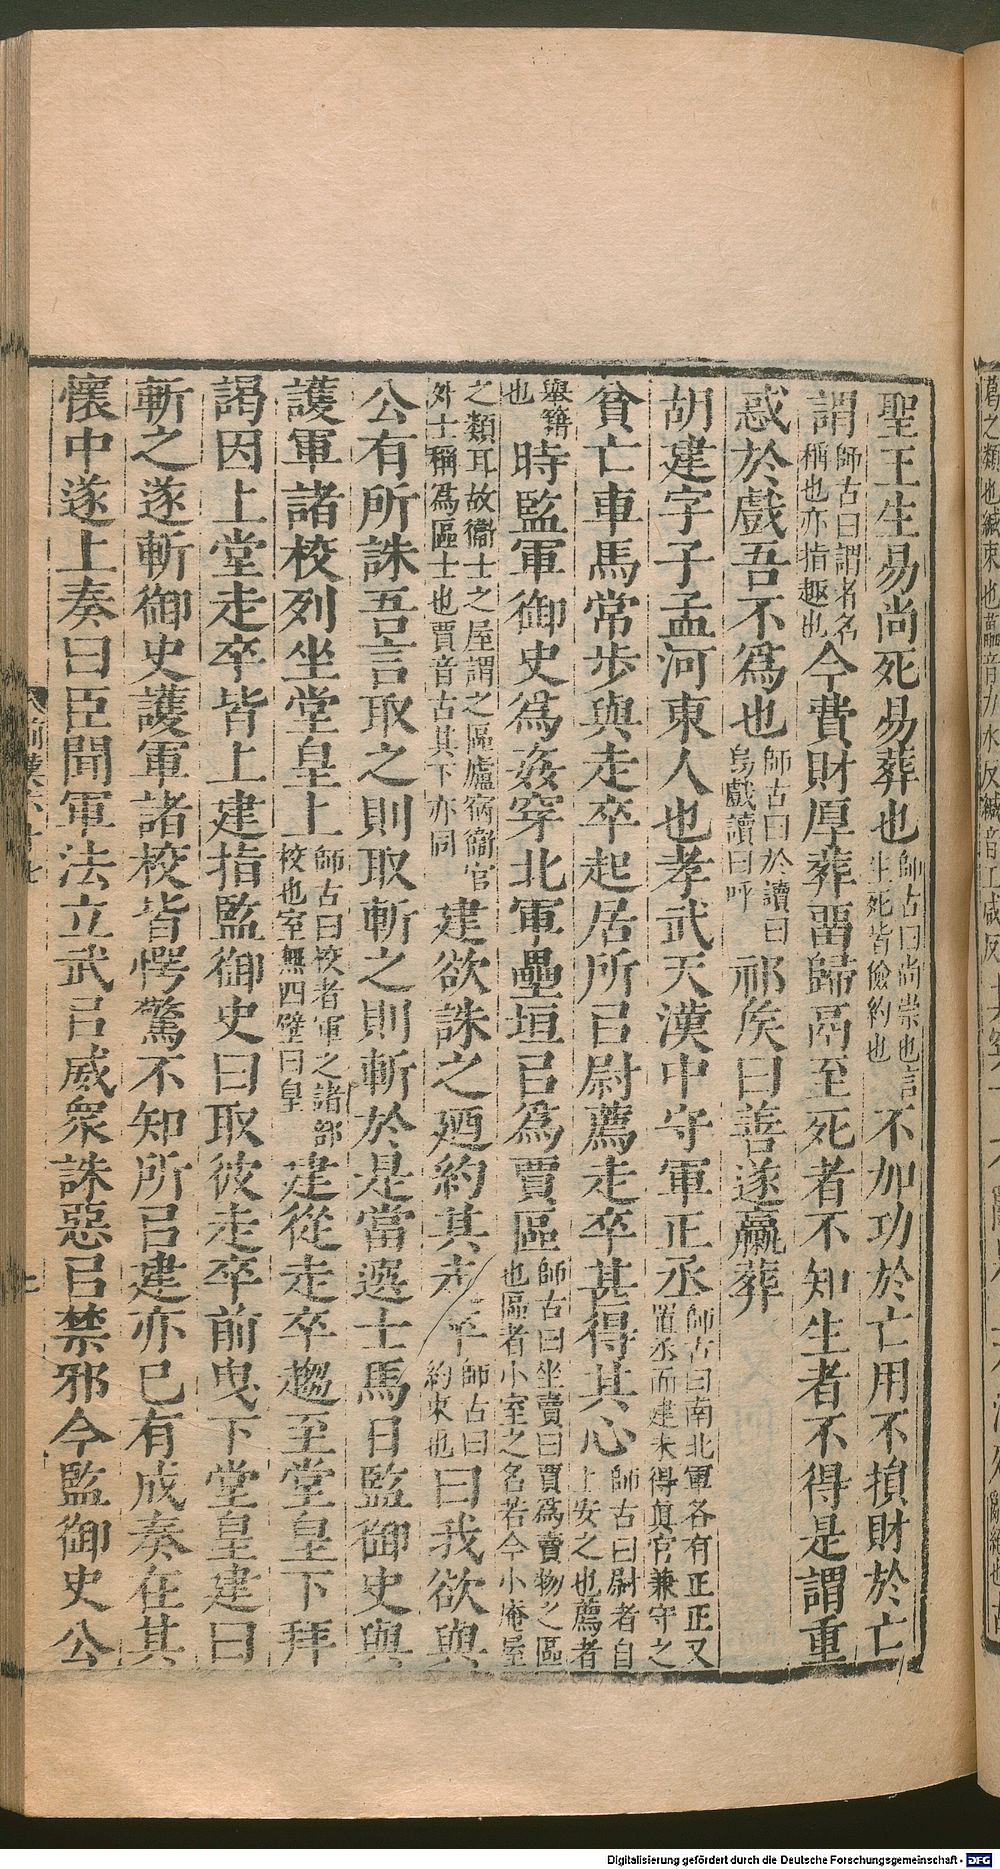 聖王生易尚死易葬也師古曰尚崇也言生死皆儉約也不加功於亡用不損財於亡
謂師古曰謂者名稱也亦指趣也今費財厚葬畱歸鬲至死者不知生者不得是謂重
惑於戲吾不爲也師古曰於讀曰烏戲讀曰呼祁侯曰善遂臝葬
胡建字子孟河東人也孝武天漢中守軍正丞師古曰南北軍各有正正又置丞而建未得真官兼守之
貧亡車馬常步與走卒起居所㠯尉薦走卒甚得其心師古曰尉者自上安之也薦者
舉籍也時監軍御史爲姦穿北軍壘垣㠯爲賈區師古曰坐賣曰賈爲賣物之區也區者小室之名若今小庵屋
之類耳故衞士之屋謂之區廬宿衞官外士稱爲區士也賈音古其下亦同建欲誅之廼約其走卒師古曰約束也曰我欲與
公有所誅吾言取之則取斬之則斬於是當選士馬日監御史與
護軍諸校列坐堂皇上師古曰校者軍之諸部校也室無四壁曰皇建從走卒趨至堂皇下拜
謁因上堂走卒皆上建指監御史曰取彼走卒前曳下堂皇建曰
斬之遂斬御史護軍諸校皆愕驚不知所㠯建亦已有成奏在其
懷中遂上奏曰臣聞軍法立武㠯威眾誅惡㠯禁邪今監御史公
前漢六十七
Digitalisierung gefördert durch die Deutsche Forschungsgemeinschaft - DFG